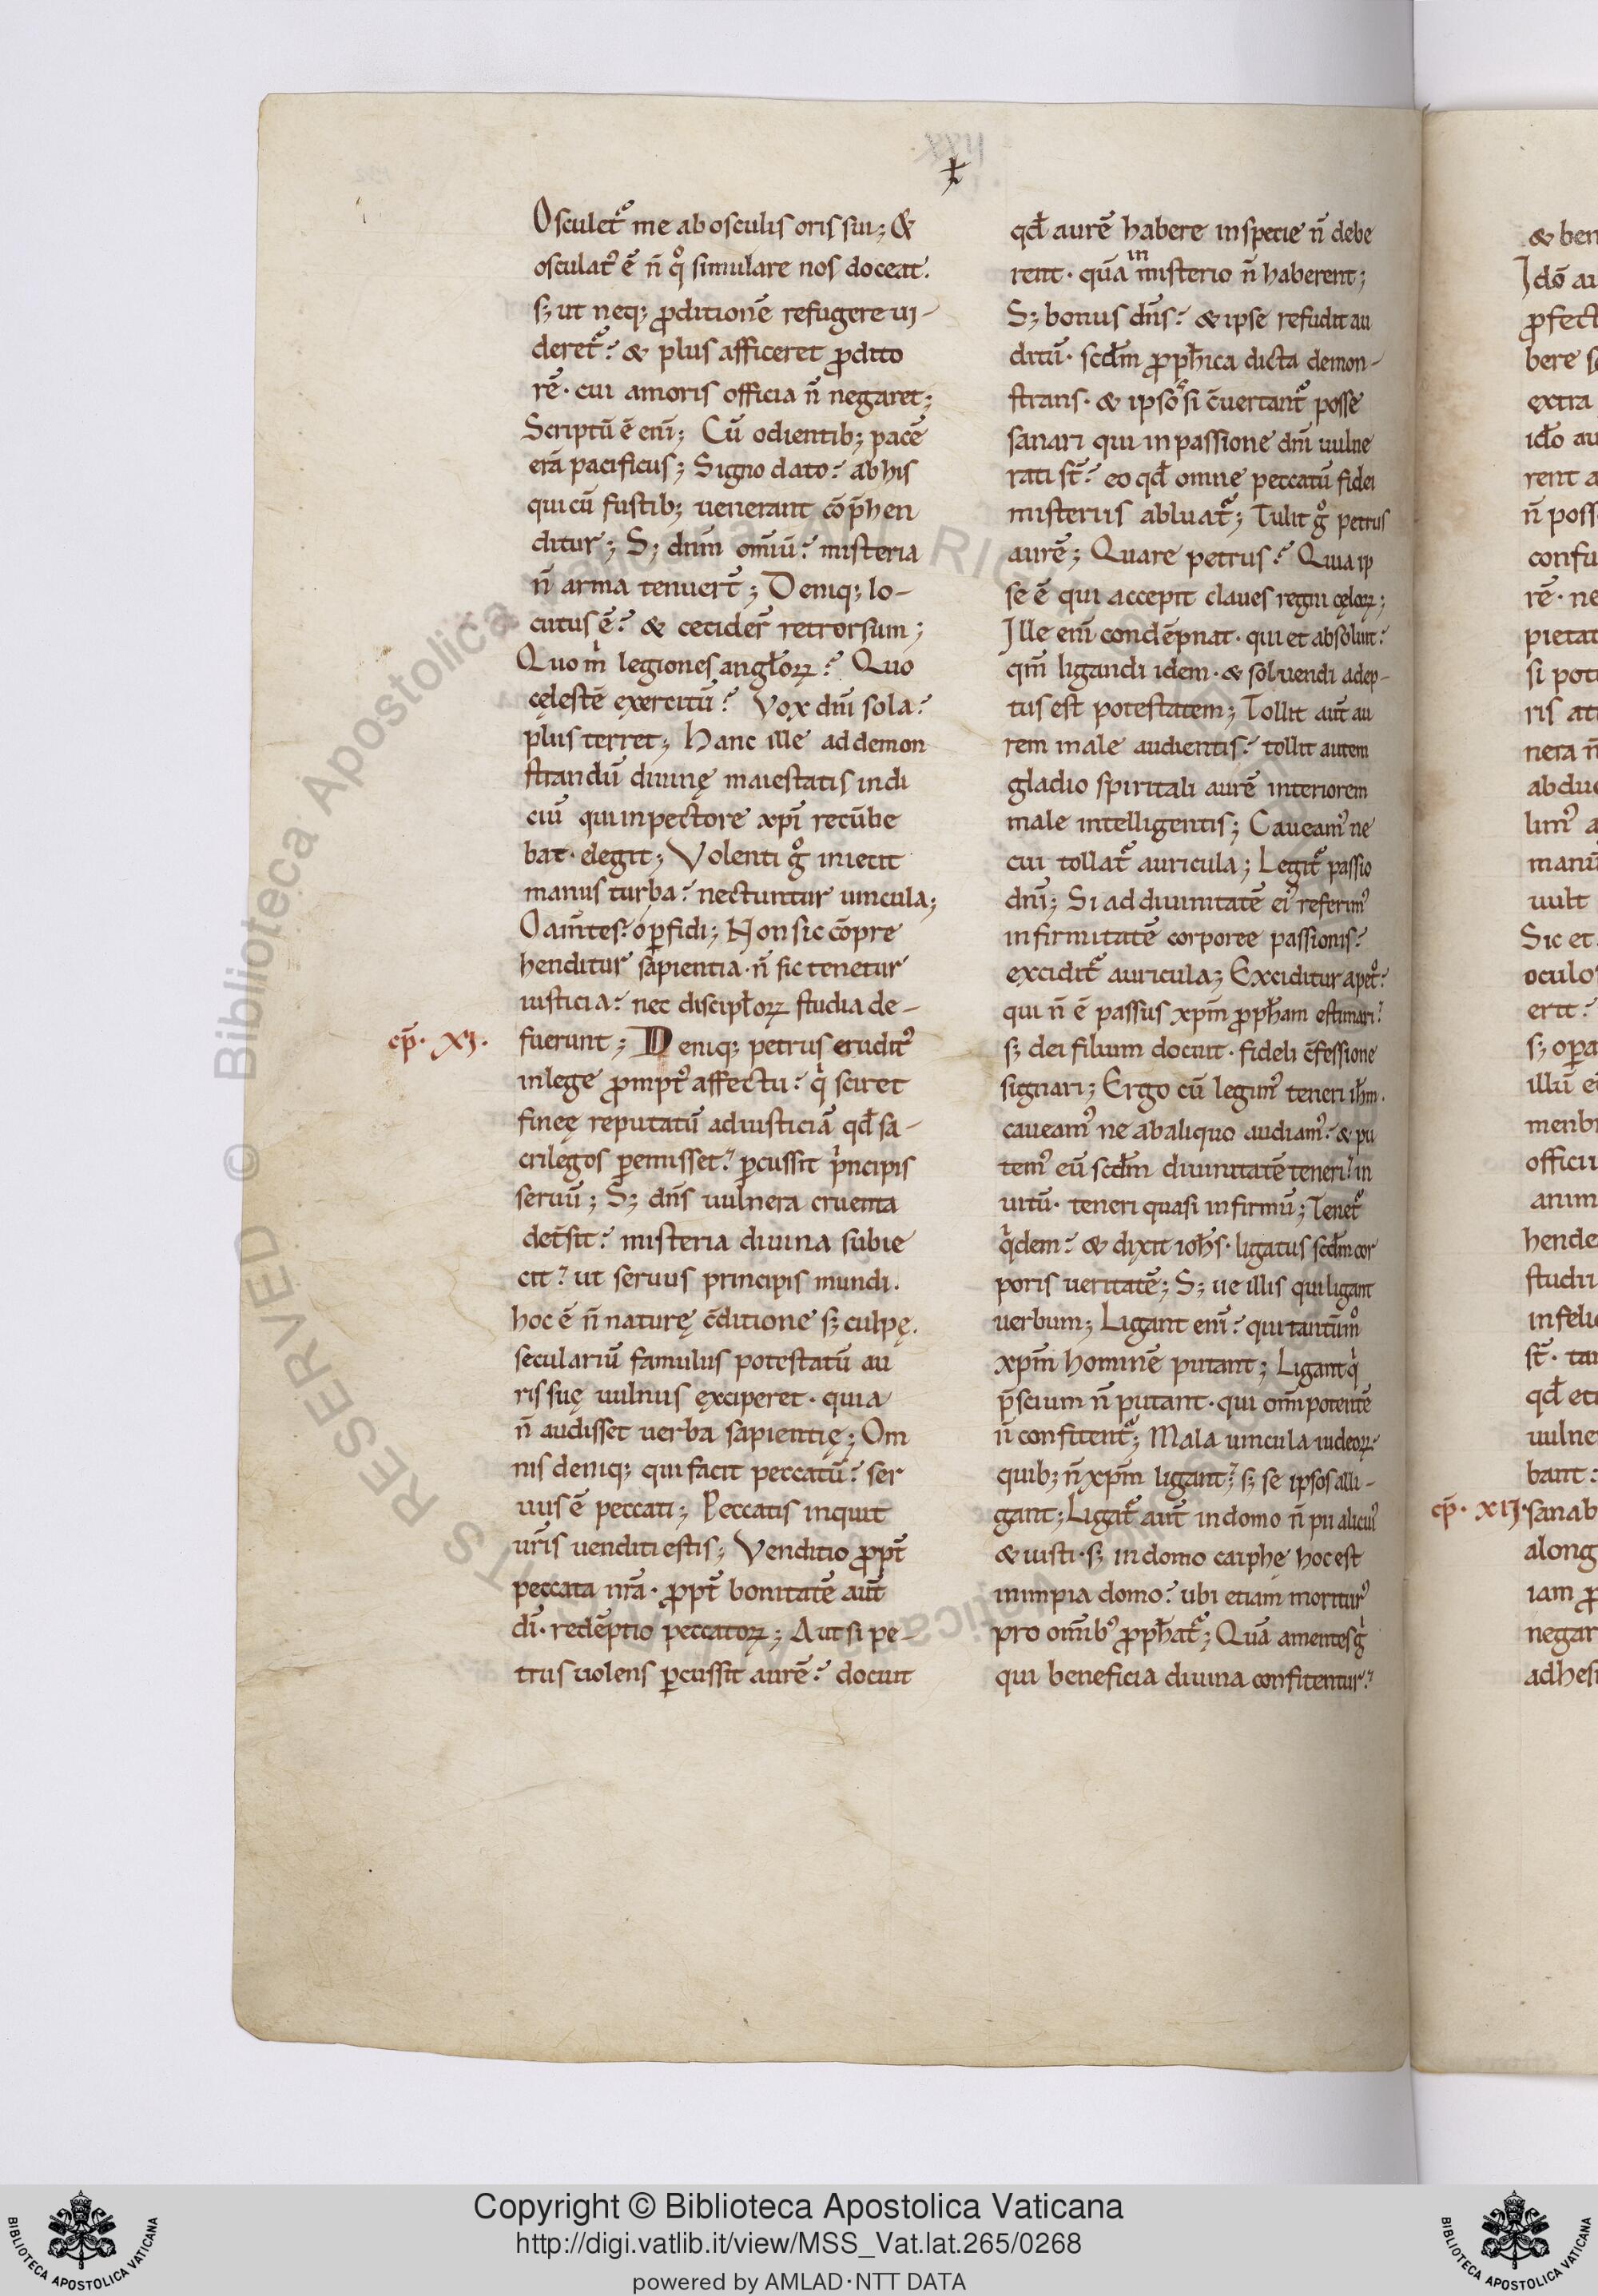 Osculet᷑ me ab osculis oris sui; &
osculat᷒ ē n̄ qͦ simulare nos doceat.
s; ut neq; ꝓditionē refugere ui-
deret᷑? & plus afficeret ꝓdito
rē· cui amoris officia n̄ negaret;
Scriptū ē eni̅; Cū odientib; pacē
erā pacificus; Signo dato? ab his
qui cū fustib; uenerant cōp̄hen
ditur; S; dn̅m om̅iū? misteria
n̄ arma tenuert̅; Deniq; lo-
cutus ē? & cecider̅ retrorsum;
Quo m̍ legiones angl̅oꝝ? Quo
cęlestē exercitū? Vox dn̅i sola?
plus terret; Hanc ille ad demon
strandū diuinę maiestatis indi
ciū qui in pectore xp̅i recūbe
bat· elegit; Volenti gͦ iniecit
manus turba? nectuntur uincula;
O am̅tes? o ꝑfidi; Non sic cōpre
henditur sapientia· n̄ sic tenetur
iusticia? nec discipl̅oꝝ studia de-
cp̄· XI·
fuerunt; Deniq; petrus erudit᷒
in lege ꝓmpt᷒ affectu? q̍ sciret
fineę reputatū ad iusticiā qd̅ sa-
crilegos ꝑemisset? ꝑcussit p̍ncipis
seruū; S; dn̅s uulnera cruenta
det̅sit? misteria diuina subie
cit? ut seruus principis mundi.
hoc ē n̄ naturę c̄ditione s; culpę.
seculariū famulus potestatū au
ris suę uulnus exciperet· quia
n̄ audisset uerba sapientię; Om
nis deniq; qui facit peccatū? ser
uus ē peccati; Peccatis inquit
ur̅is uenditi estis; Venditio ꝓpt̅
peccata nr̅a· ꝓpt̅ bonitatē aut̅
di̅· redēptio peccatoꝝ; Aut si pe-
trus uolens ꝑcussit aurē? docuit
qd̅ aurē habere in specie n̄ debe
rent· quā in misterio n̄ haberent;
S; bonus dn̅s? & ipse refudit au
ditū· scd̅m ꝓph̅ica dicta demon-
strans· & ipsoᷤ si c̄uertant᷑ posse
sanari qui in passione dn̅i uulne
rati st̅? eo qd̅ omne peccatū fidei
misteriis abluat᷑; Tulit gͦ petrus
aurē; Quare petrus? Quia ip
se ē qui accepit claues regni cęloꝝ;
Ille eni̅ condēpnat· qui et absoluit?
qm̅ ligandi idem· & soluendi adep-
tus est potestatem; Tollit aut̅ au
rem male audientis? tollit autem
gladio spiritali aurē interiorem
male intelligentis; Caueam᷒ ne
cui tollat᷑ auricula; Legit᷑ passio
dn̅i; Si ad diuinitatē ei᷒ referim᷒
infirmitatē corporee passionis?
excidit᷑ auricula; Exciditur a petͦ?
qui n̄ ē passus xp̅m ꝓph̅am estimari?
s; dei filium docuit· fideli c̄fessione
signari; Ergo cū legim᷒ teneri ih̅m·
caueam᷒ ne ab aliquo audiam᷒? & pu
tem᷒ eū scd̅m diuinitatē teneri? in
uitū· teneri quasi infirmū; Tenet᷑
q̍dem? & dixit ioh̅s· ligatus scd̅m cor
poris ueritatē; S; ue illis qui ligant
uerbum; Ligant eni̅? qui tantūmͦ
xp̅m hominē putant; Ligant q̍
p̄scium n̄ putant· qui om̅ipotentē
n̄ confitent᷑; Mala uincula iudeoꝝ?
quib; n̄ xp̅m ligant? s; se ipsos alli-
gant; Ligat᷑ aut̅ in domo n̄ pii alicui᷒
& iusti· s; in domo caiphę hoc est
in impia domo? ubi etiam moritur᷒
pro om̅ib᷒ ꝓph̅at᷑; Quā amentes g̍
qui beneficia diuina confitentur?
& ben
Idō au
ꝓfect
bere s
extra
ido̅ au
rent a
n̄ poss
confu
rē· ne
pietat
si pot
ris at
nera n̄
abdu
lim᷒ a
manū
uult
Sic et
oculo
erit?
s; oꝑa
illū e
menb
officiu
anim
hende
studii
infeli
st̅· tan
qd̅ eti
uulne
bant:
cp̄· XII·
sanab
along
iam ꝓ
negar
adhes
© Biblioteca Apostolica Vaticana
ALL RIGHTS RESERVED
Copyright © Biblioteca Apostolica Vaticana
http://digi.vatlib.it/view/MSS_Vat.lat.265/0268
powered by AMLAD·NTT DATA
BIBLIOTECA APOSTOLICA VATICANA
BIBLIOTECA APOSTOLICA VATICANA